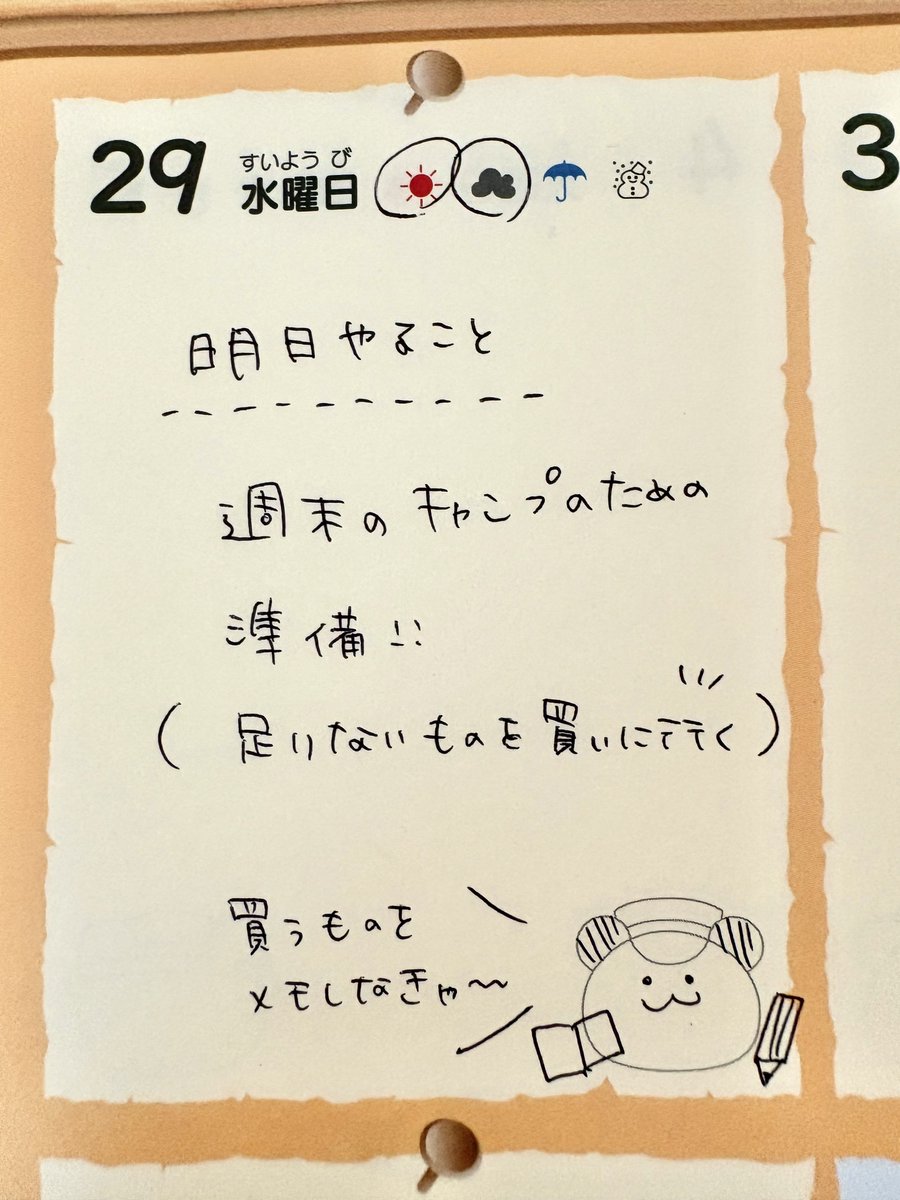 29
すいようび
水曜日
3
明日やること
週末のキャンプのための
準備!!
(足りないものを買いに行く)
買うものを
メモしなきゃ〜